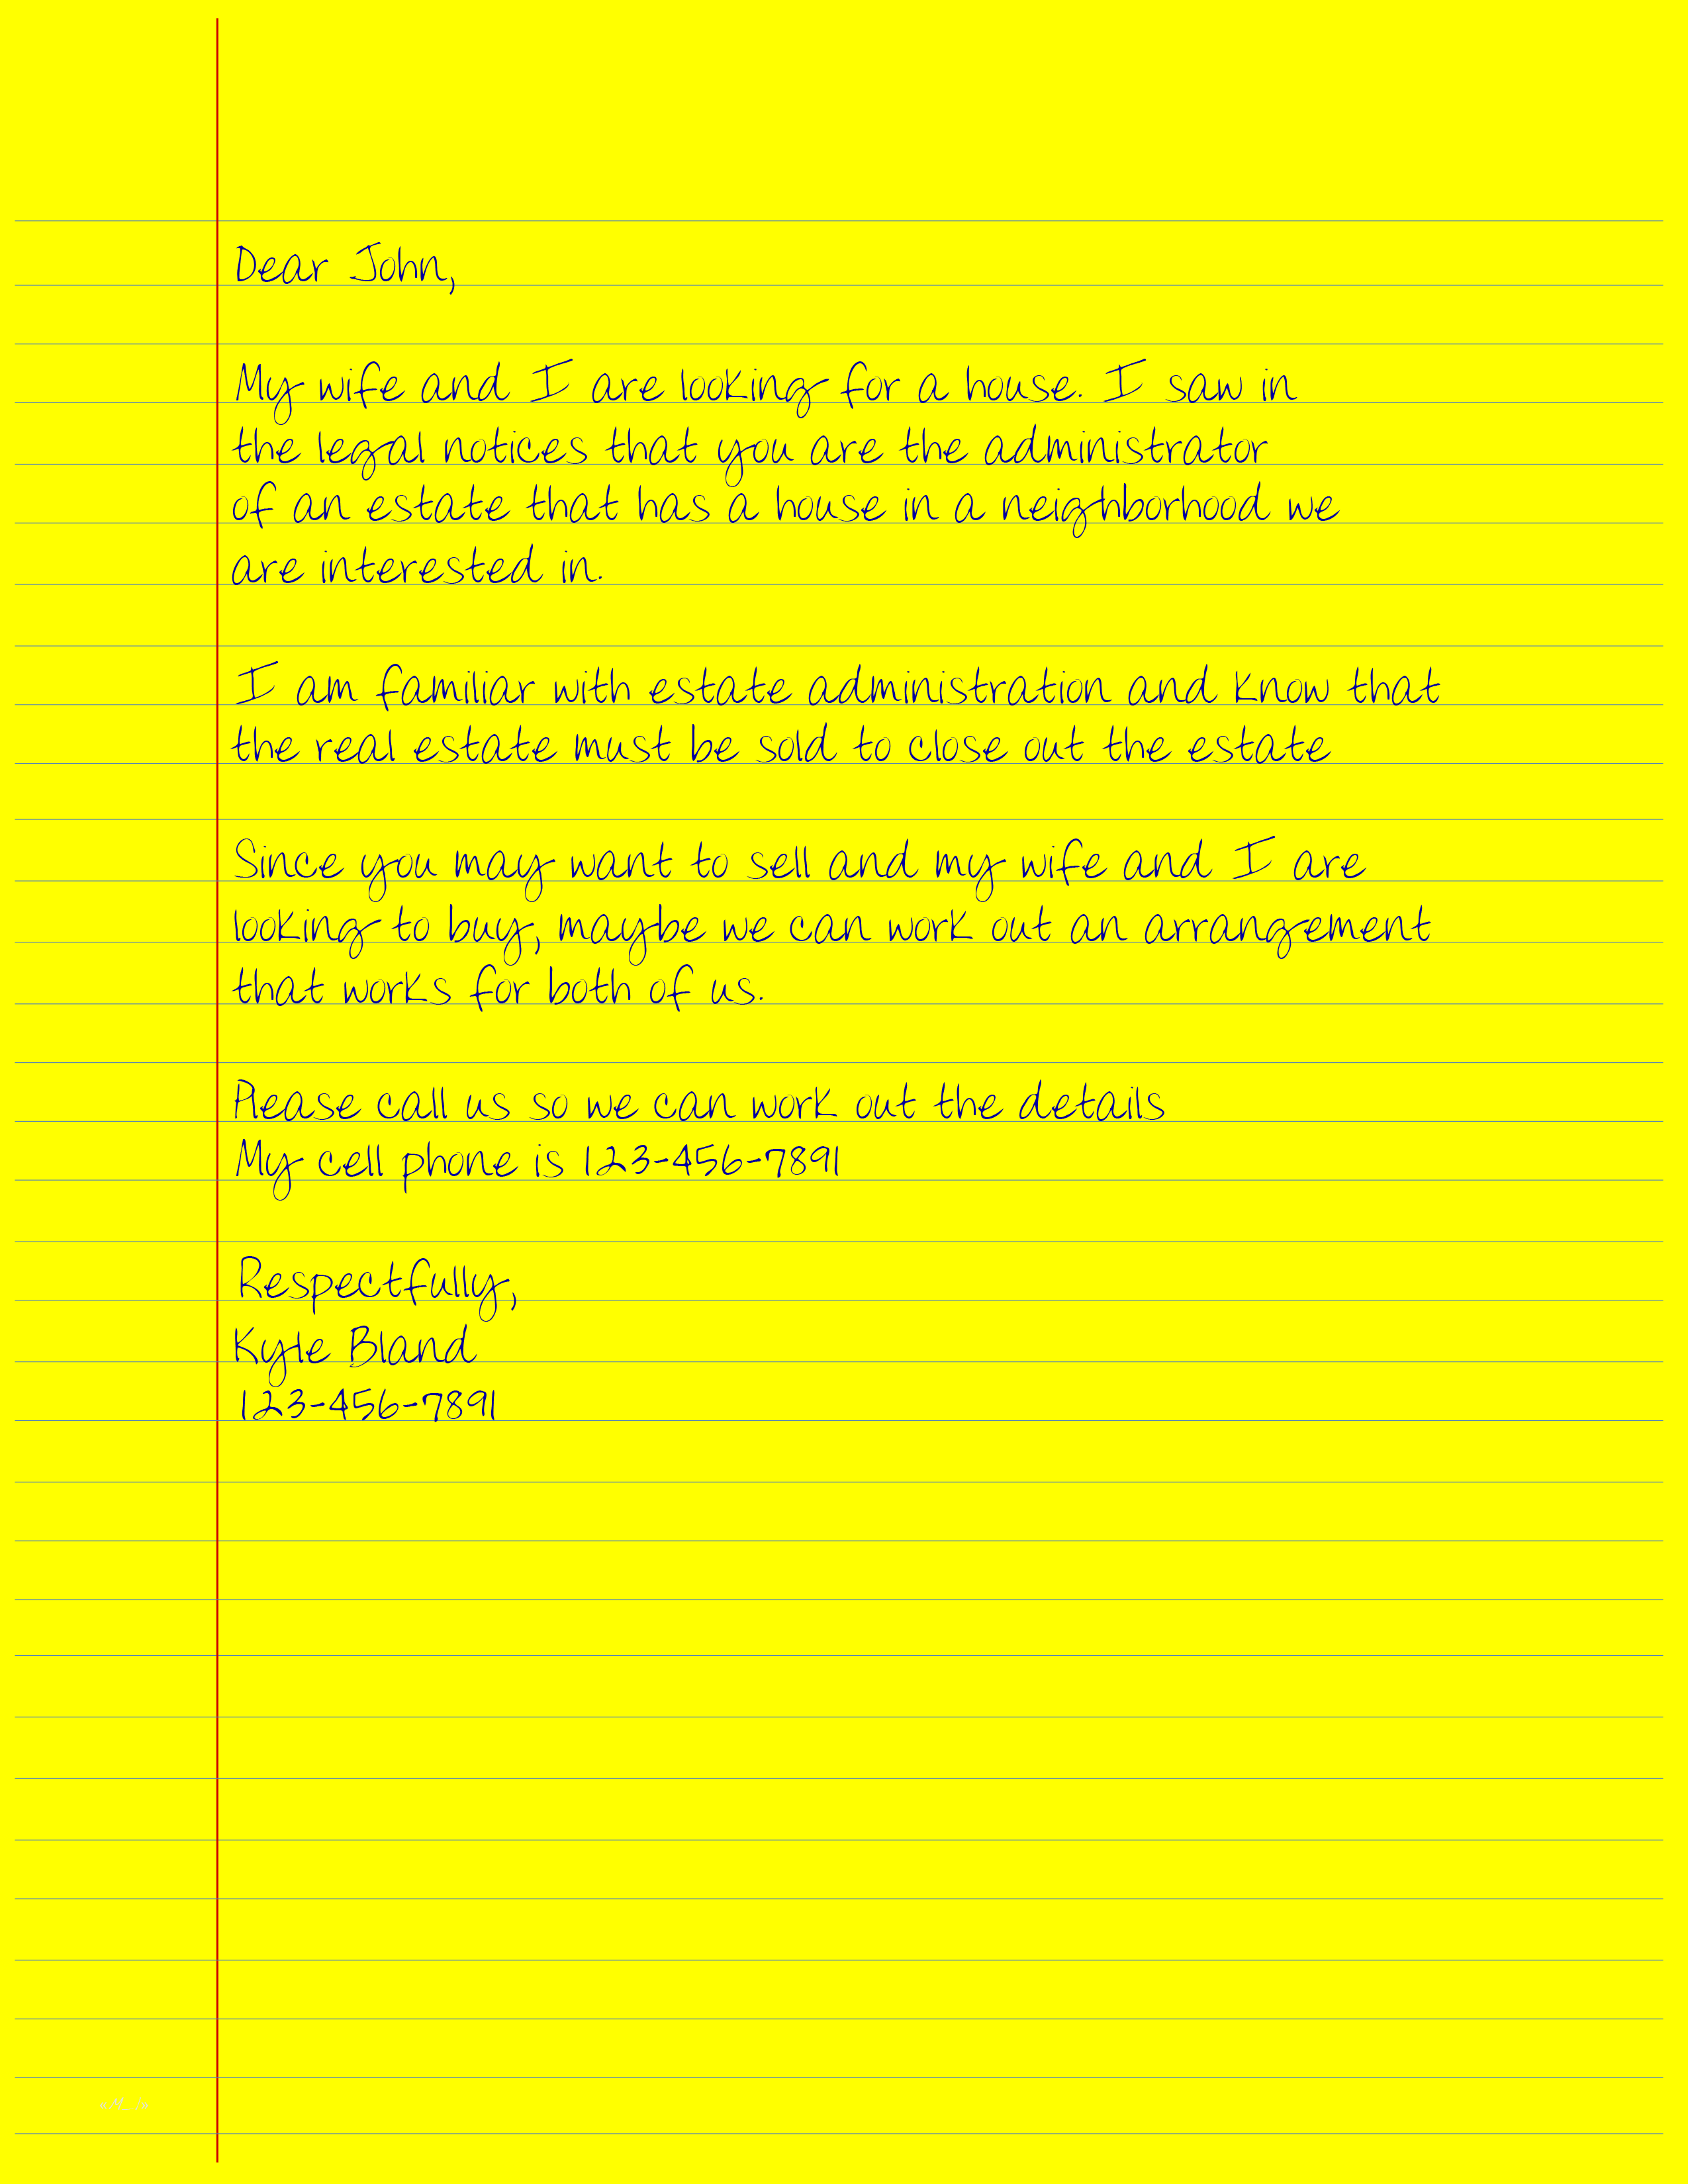 Dear John,
My wife and I are looking for a house. I saw in
the legal notices that you are the administrator
of an estate that has a house in a neighborhood we
are interested in.
I am familiar with estate administration and know that
the real estate must be sold to close out the estate
Since you may want to sell and my wife and I are
looking to buy, maybe we can work out an arrangement
that works for both of us.
Please call us so we can work out the details
My cell phone is 123-456-7891
Respectfully,
Kyle Bland
123-456-7891